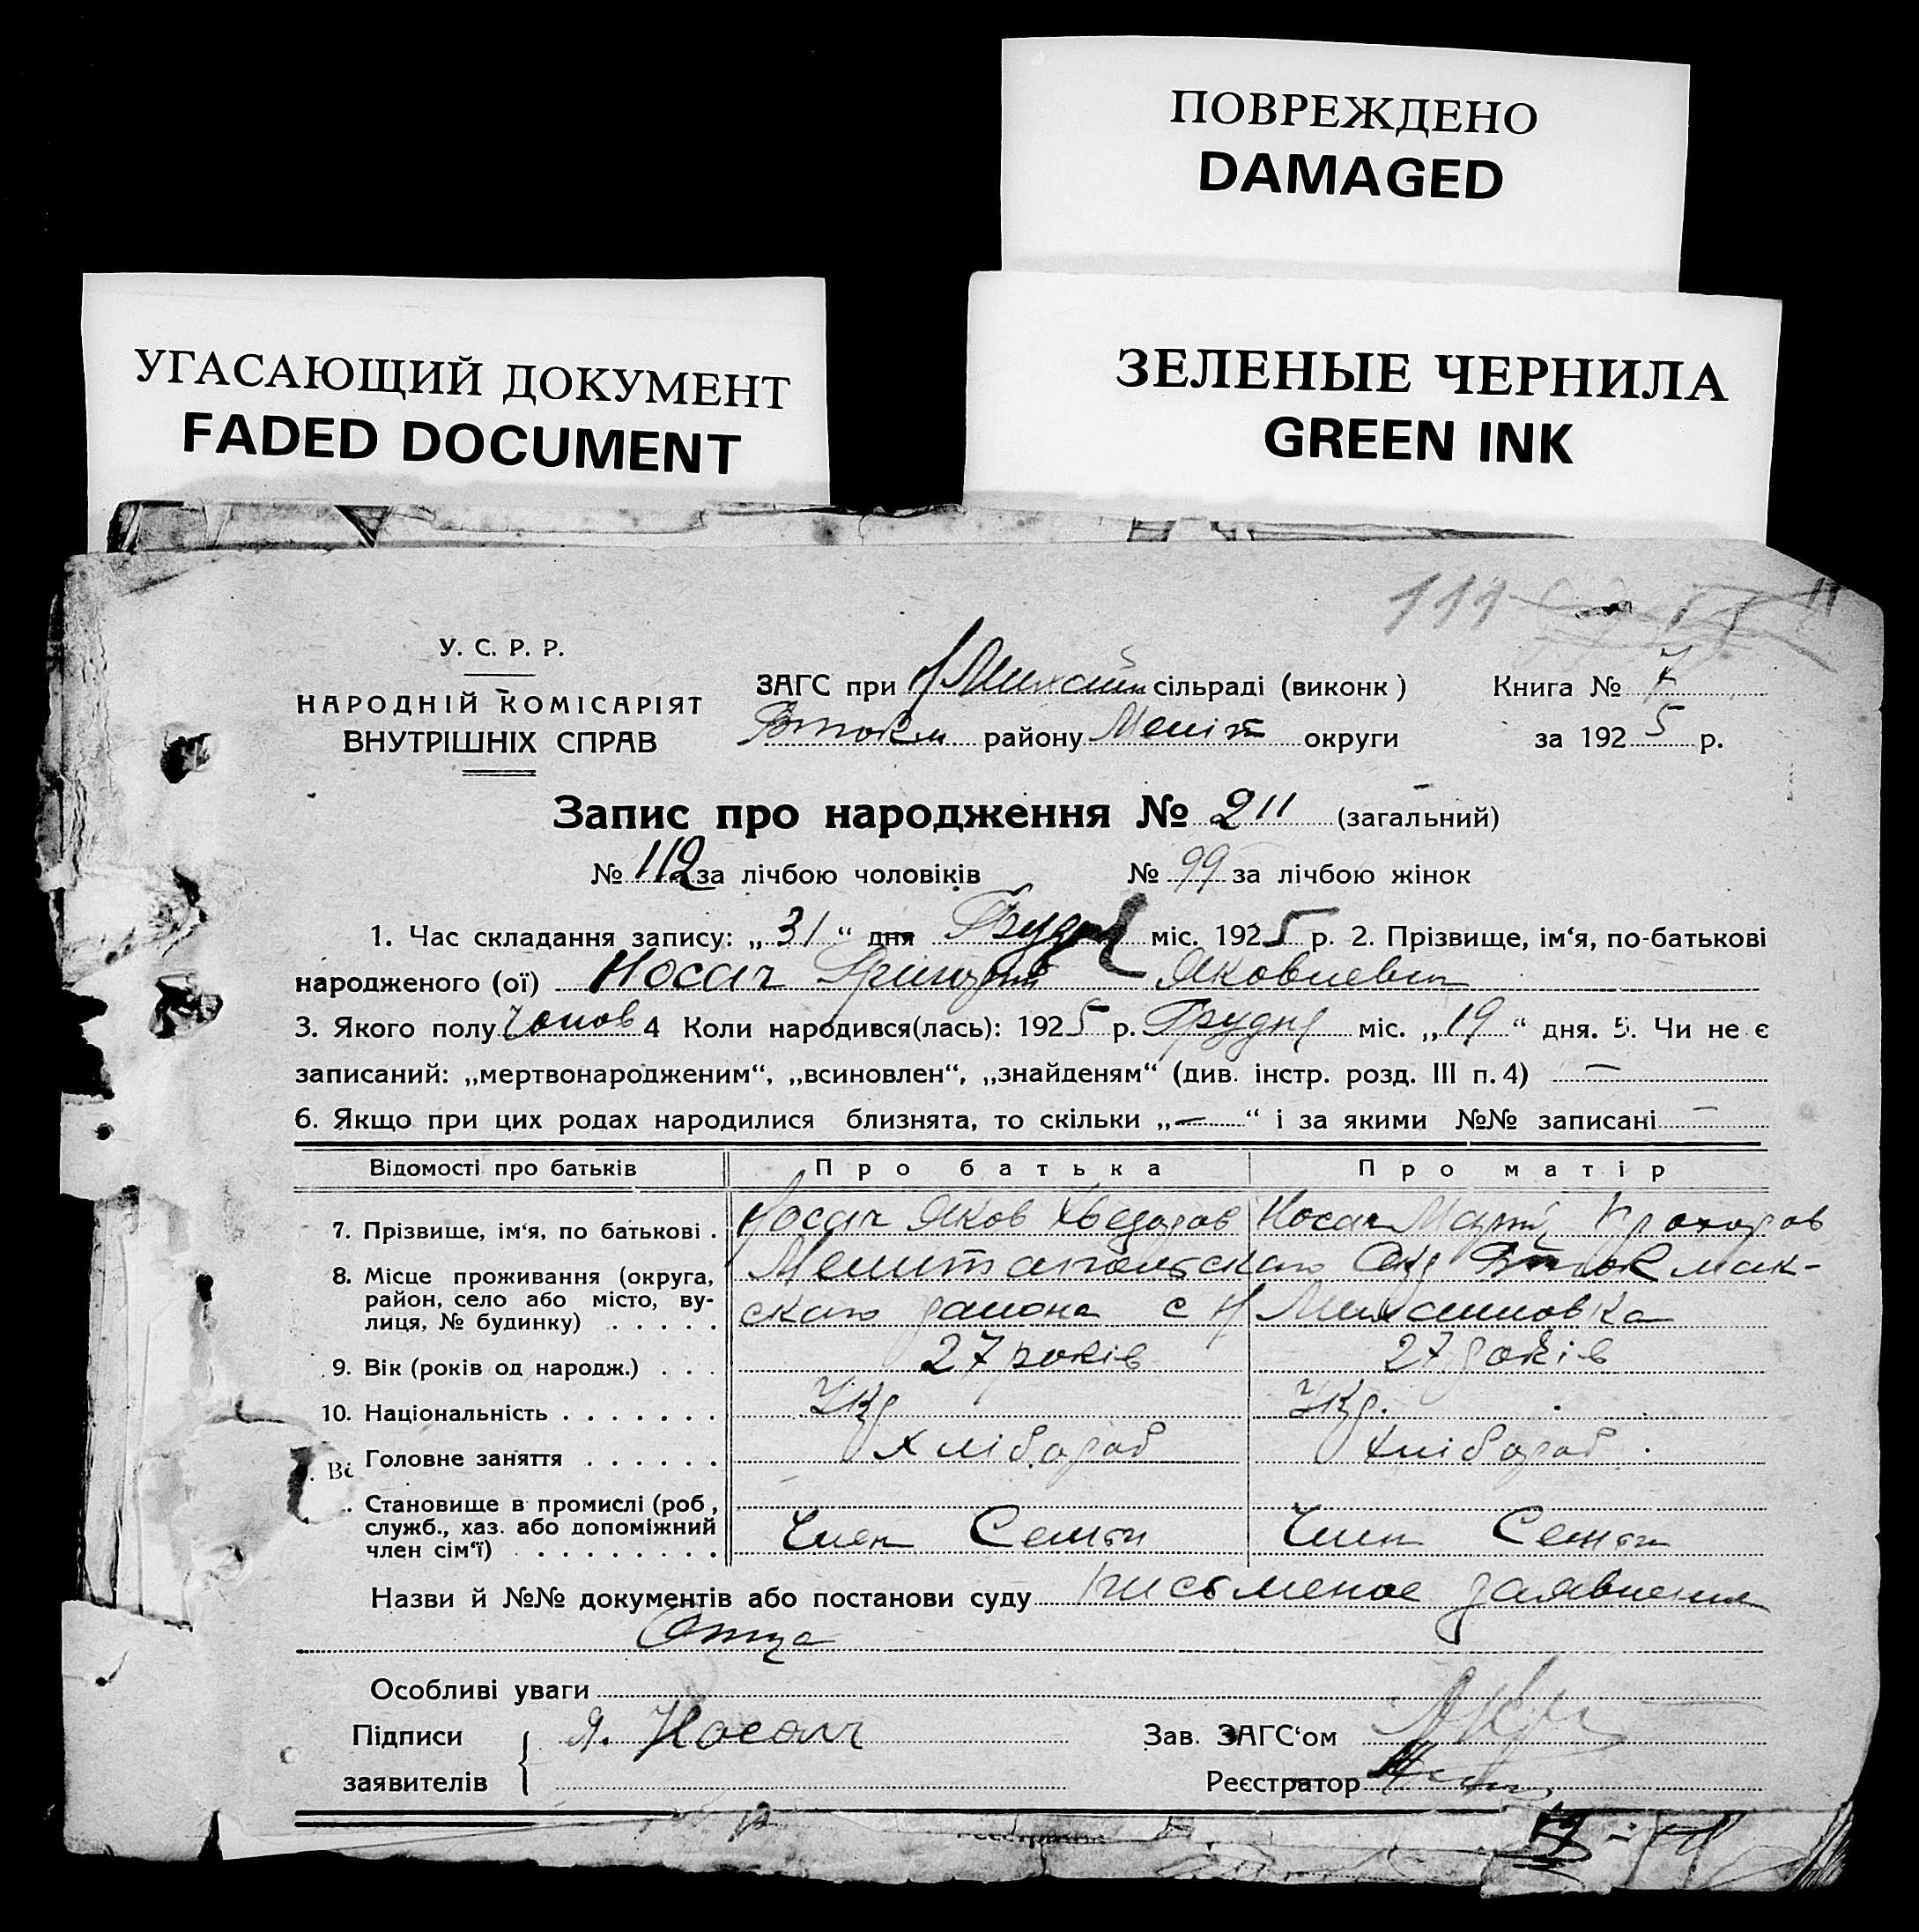 ПОВРЕЖДЕНО
DAMAGED
УГАСАЮЩИЙ ДОКУМЕНТ
FADED DOCUMENT
ЗЕЛЕНЫЕ ЧЕРНИЛА
GREEN INK
111
У. С. Р. Р.
НАРОДНІЙ КОМІСАРІЯТ
ВНУТРІШНІХ СПРАВ
ЗАГС при сільраді (виконк)
району Меліт округи
Книга № 7
за 1925 р.
Запис про народження № 211 (загальний)
№ 112 за лічбою чоловіків № 99 за лічбою жінок
1. Час складання запису: „31“ дня Грудня міс. 1925 р. 2. Прізвище, ім‘я, по-батькові
народженого (ої) Носач Григорій Яковлевич
3. Якого полу Чолов 4 Коли народився(лась): 1925 р. Грудня міс. „19“ дня. 5. Чи не є
записаний: „мертвонародженим“, „всиновлен“, „знайденям“ (див. інстр. розд. III п. 4) —
6. Якщо при цих родах народилися близнята, то скільки „—“ і за якими №№ записані —
Відомості про батьків Про батька Про матір
7. Прізвище, ім‘я, по батькові . Носач Яков Хведоров Носач Марія Прохоров
8. Місце проживання (округа, район, село або місто, вулиця, № будинку) . . . . . Мелитопольскаго Окр
скаго района с Н Михайловка
9. Вік (років од народж.) . . . 27 років 27 років
10. Національність . . . . . . . Укр Укр.
Головне заняття . . . . . . Хлібороб Хлібороб
Становище в промислі (роб, служб., хаз. або допоміжний член сім‘ї) . . . . . . . . Член Семьи Член Семьи
Назви й №№ документів або постанови суду письменое заявление
Отца
Особливі уваги
Підписи заявителів Я. Носач
Зав. ЗАГС‘ом
Реєстратор